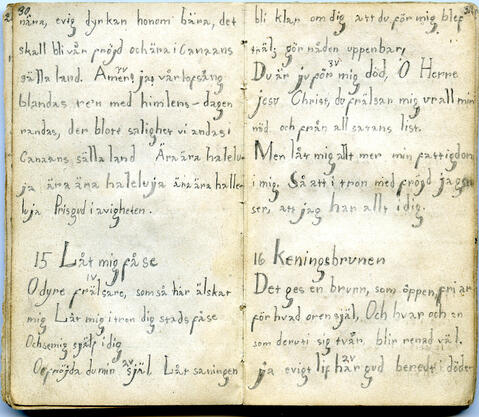 30.
nära, evig dyrkan honom bära, det
skall bli vår fröjd och ära i Canaans
sälla land. Amen, ja, vår lofsång
blandas re'n med himlens – dagen
randas, der blott salighet vi andas i
Canaans sälla land Ära ära halelu-
ja ära ära haleluja ära ära halle-
luja Prisgud i avigheten.
15 Låt mig få se
IV
O dyre frälsare, som så här älskat
mig Låt mig i tron dig städs få se
Och se mig själf i dig
Och fröjda du min själ Låt saningen
31.
bli klar om dig att du för mig blef
träl; gör nåden uppenbar,
3V
Du är ju för mig död, O Herre
Jesu Christ, du frälsan mig ur all min
nöd och från all satans list.
Men låt mig allt mer min fattigdom
i mig. Så att i tron med fröjd jag
ser, att jag har allt i dig.
16 Keningsbrunen
Det ges en brunn, som öppen, fri är
för hvad oren själ, Och hvar och en
som deruti sig tvår, blir renad väl.
2V
ja evigt lif har gud beredt i döden